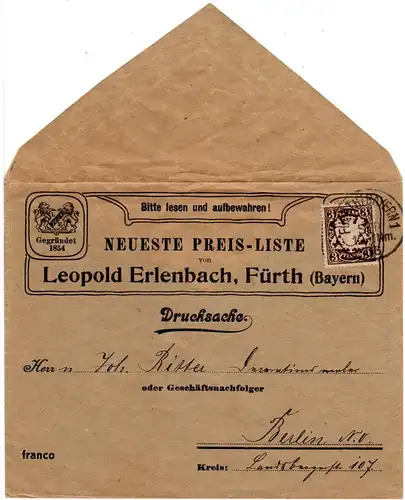 Bitte lesen und aufbewahren!
Gegründet
1854
NEUESTE PREIS-LISTE
von
Leopold Erlenbach, Fürth (Bayern)
3 3
3 3
Drucksache.
Herrn Joh. Ritter Decorationsmaler
oder Geschäftsnachfolger
Berlin N.O.
franco
Kreis: Landsbergerst 107.